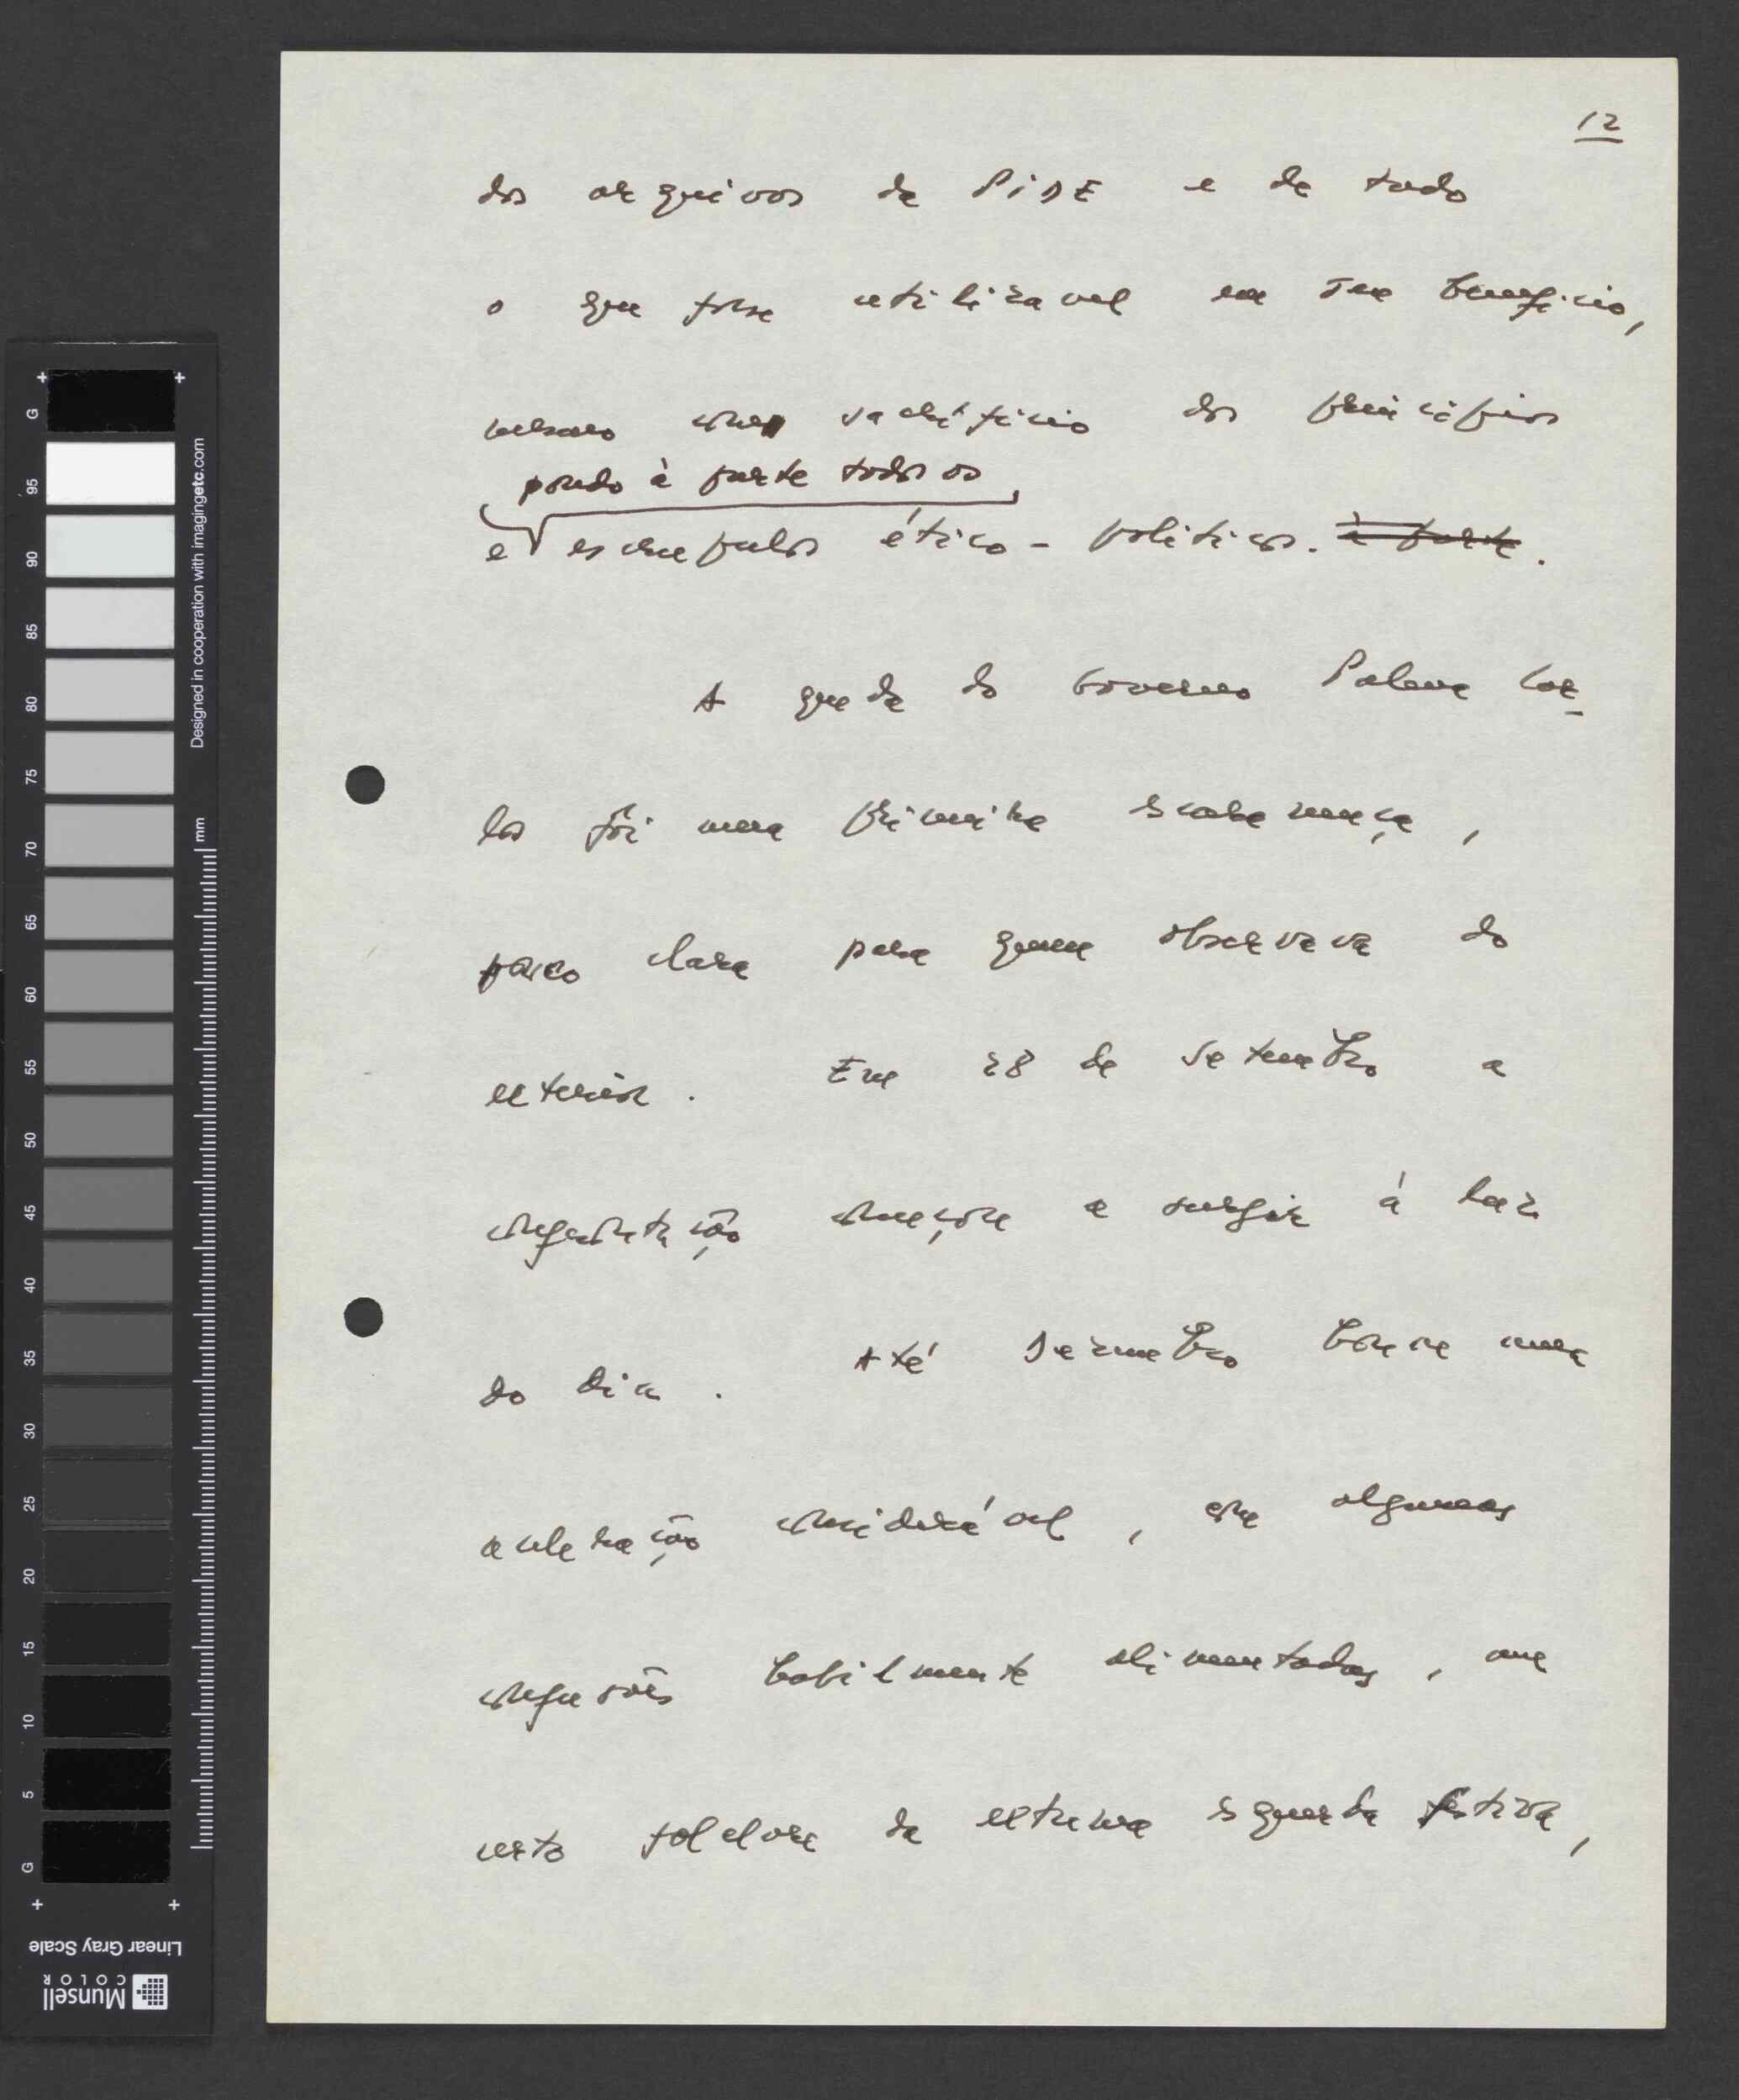 12
dos arquivos da PIDE e de tudo
o que fosse utilizavel em seu beneficio,
mesmo com sacrifício dos principios
pondo à parte todos os
e escrupulos ético-politicos. à parte.
A queda do Governo Palma Car-
los foi uma primeira escaramuça,
pouco clara para quem observava do
exterior. Em 28 de Setembro a
confrontação começou a surgir á luz
do dia. Até Dezembro houve uma
aceleração considerável, com algumas
confusões habilmente alimentadas, um
certo folclore da extrema esquerda festiva,
Designed in cooperation with imagingetc.com
mm
G 95 90 85 80 75 70 65 60 55 50 45 40 35 30 25 20 15 10 5 G
Linear Gray Scale
Munsell
COLOR